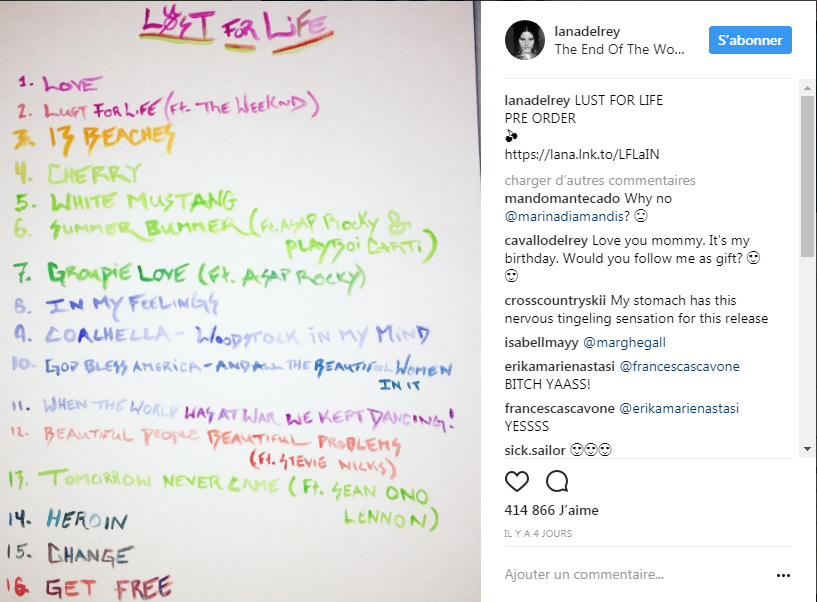 LUST FOR LIFE
1. LOVE
2. LUST FOR LIFE (Ft. THE WEEKND)
3. 13 BEACHES
4. CHERRY
5. WHITE MUSTANG
6. SUMMER BUMMER (Ft. ASAP ROCKY &
PLAYBOI CARTI)
7. GROUPIE LOVE (Ft. ASAP ROCKY)
8. IN MY FEELINGS
9. COALHELLA - WOODSTOCK IN MY MIND
10. GOD BLESS AMERICA - AND ALL THE BEAUTIFUL WOMEN
IN IT
11. WHEN THE WORLD WAS AT WAR WE KEPT DANCING!
12. BEAUTIFUL PEOPLE BEAUTIFUL PROBLEMS
(Ft. STEVIE NICKS)
13. TOMORROW NEVER CAME (Ft. SEAN ONO
LENNON)
14. HEROIN
15. CHANGE
16. GET FREE
lanadelrey
The End Of The Wo...
S'abonner
lanadelrey LUST FOR LIFE
PRE ORDER
🍒
https://lana.lnk.to/LFLaIN
charger d'autres commentaires
mandomantecado Why no
@marinadiamandis? 😐
cavallodelrey Love you mommy. It's my
birthday. Would you follow me as gift? 😍
😍
crosscountryskii My stomach has this
nervous tingeling sensation for this release
isabellmayy @marghegall
erikamarienastasi @francescascavone
BITCH YAASS!
francescascavone @erikamarienastasi
YESSSS
sick.sailor 😍😍😍
414 866 J'aime
IL Y A 4 JOURS
Ajouter un commentaire...